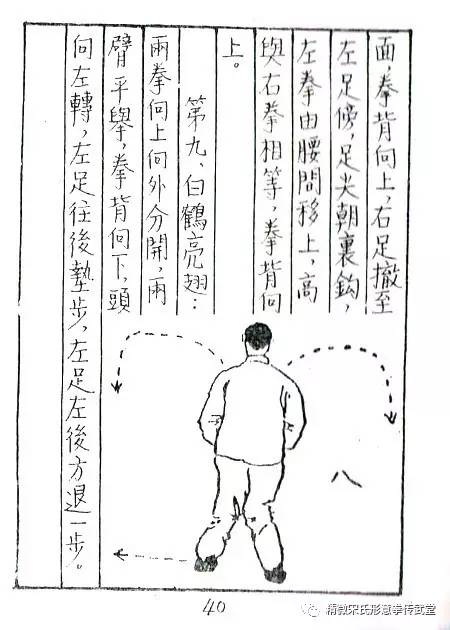 面，拳背向上，右足撤至
左足傍，足尖朝裏鈎，
左拳由腰間移上，高
與右拳相等，拳背向
上。
第九、白鶴亮翅：
兩拳向上向外分開，兩
臂平舉，拳背向下，頭
向左轉，左足往後墊步，左足左後方退一步。
八
40
精微宋氏形意拳传武堂